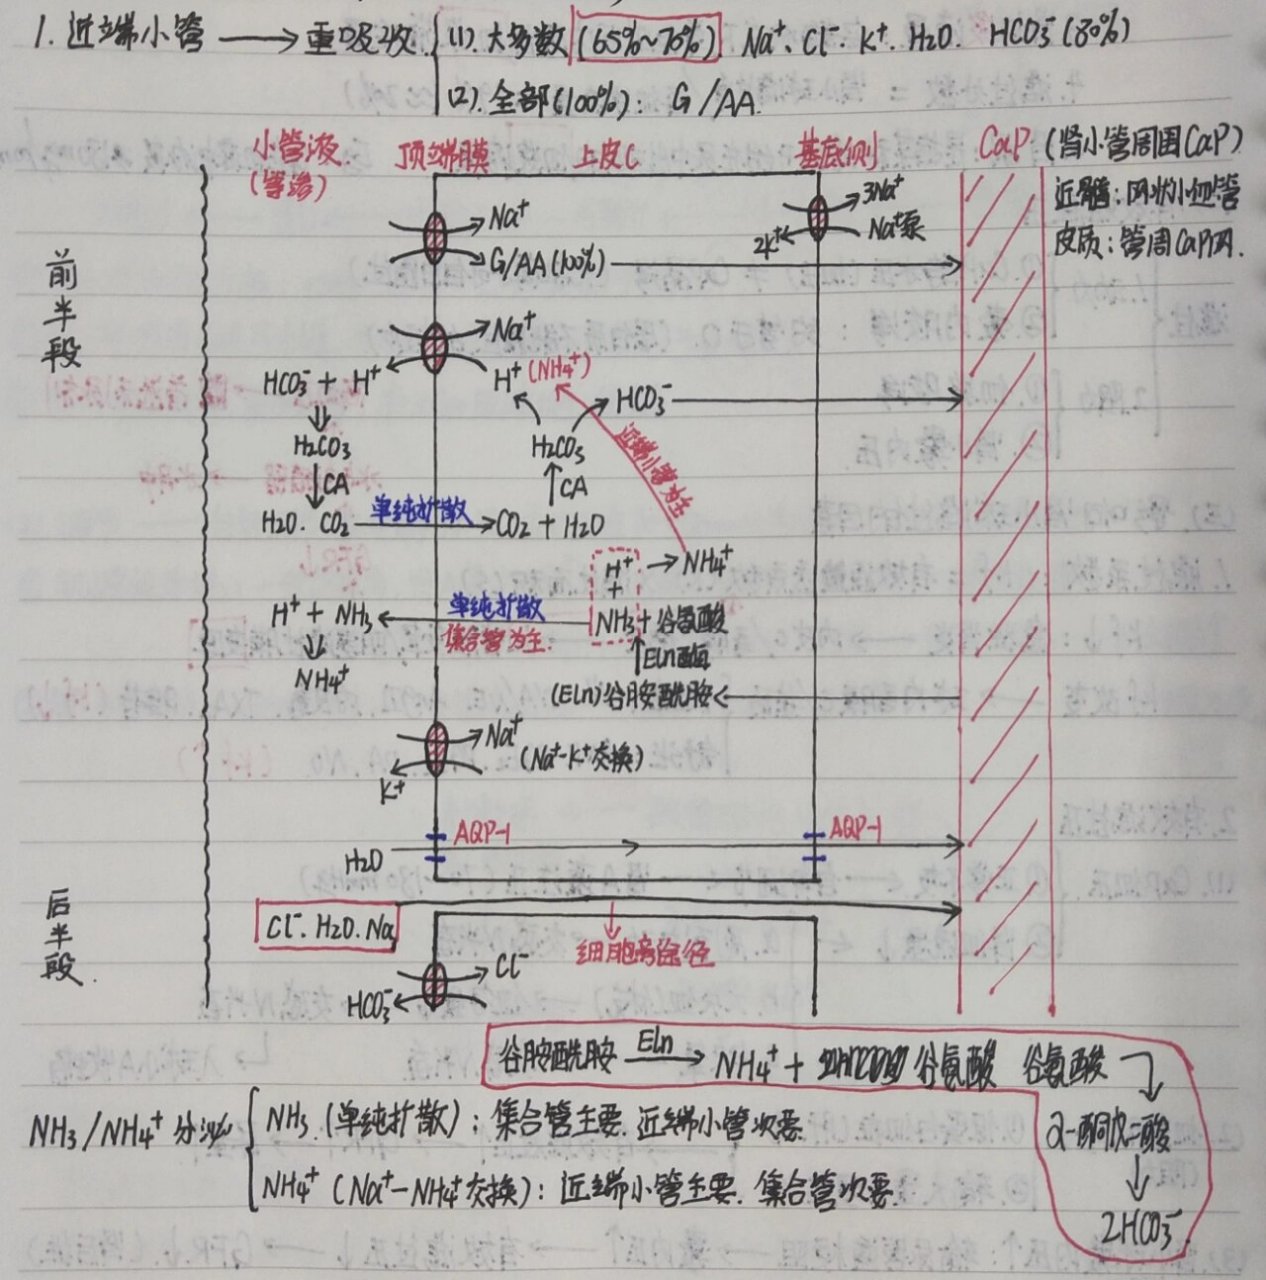 1. 近端小管 → 重吸收 (1). 大多数 (65%~70%) Na⁺、Cl⁻. K⁺. H₂O. HCO₃⁻(80%)
(2). 全部(100%): G/AA.
小管液 顶端膜 上皮C 基底侧 CaP (肾小管周围CaP)
(等渗)
近髓: 网状小血管
皮质: 管周CaP网.
前半段
Na⁺ 3Na⁺
G/AA(100%) 2K⁺ Na⁺泵
Na⁺
HCO₃⁻ + H⁺ H⁺ (NH₄⁺) HCO₃⁻
H₂CO₃ H₂CO₃ 近端小管为主
CA CA
H₂O. CO₂ 单纯扩散 CO₂ + H₂O
H⁺ → NH₄⁺
+
H⁺ + NH₃ 单纯扩散 NH₃ + 谷氨酸
集合管为主.
NH₄⁺ Eln酶
(Eln)谷胺酰胺
Na⁺
(Na⁺-K⁺交换)
K⁺
AQP-1 AQP-1
H₂O
后半段.
Cl⁻. H₂O. Na
细胞旁途径
Cl⁻
HCO₃⁻
谷胺酰胺 Eln → NH₄⁺ + 谷氨酸 谷氨酸
NH₃/NH₄⁺ 分泌 NH₃ (单纯扩散): 集合管主要. 近端小管次要.
α-酮戊二酸
NH₄⁺ (Na⁺-NH₄⁺交换): 近端小管主要. 集合管次要.
2HCO₃⁻